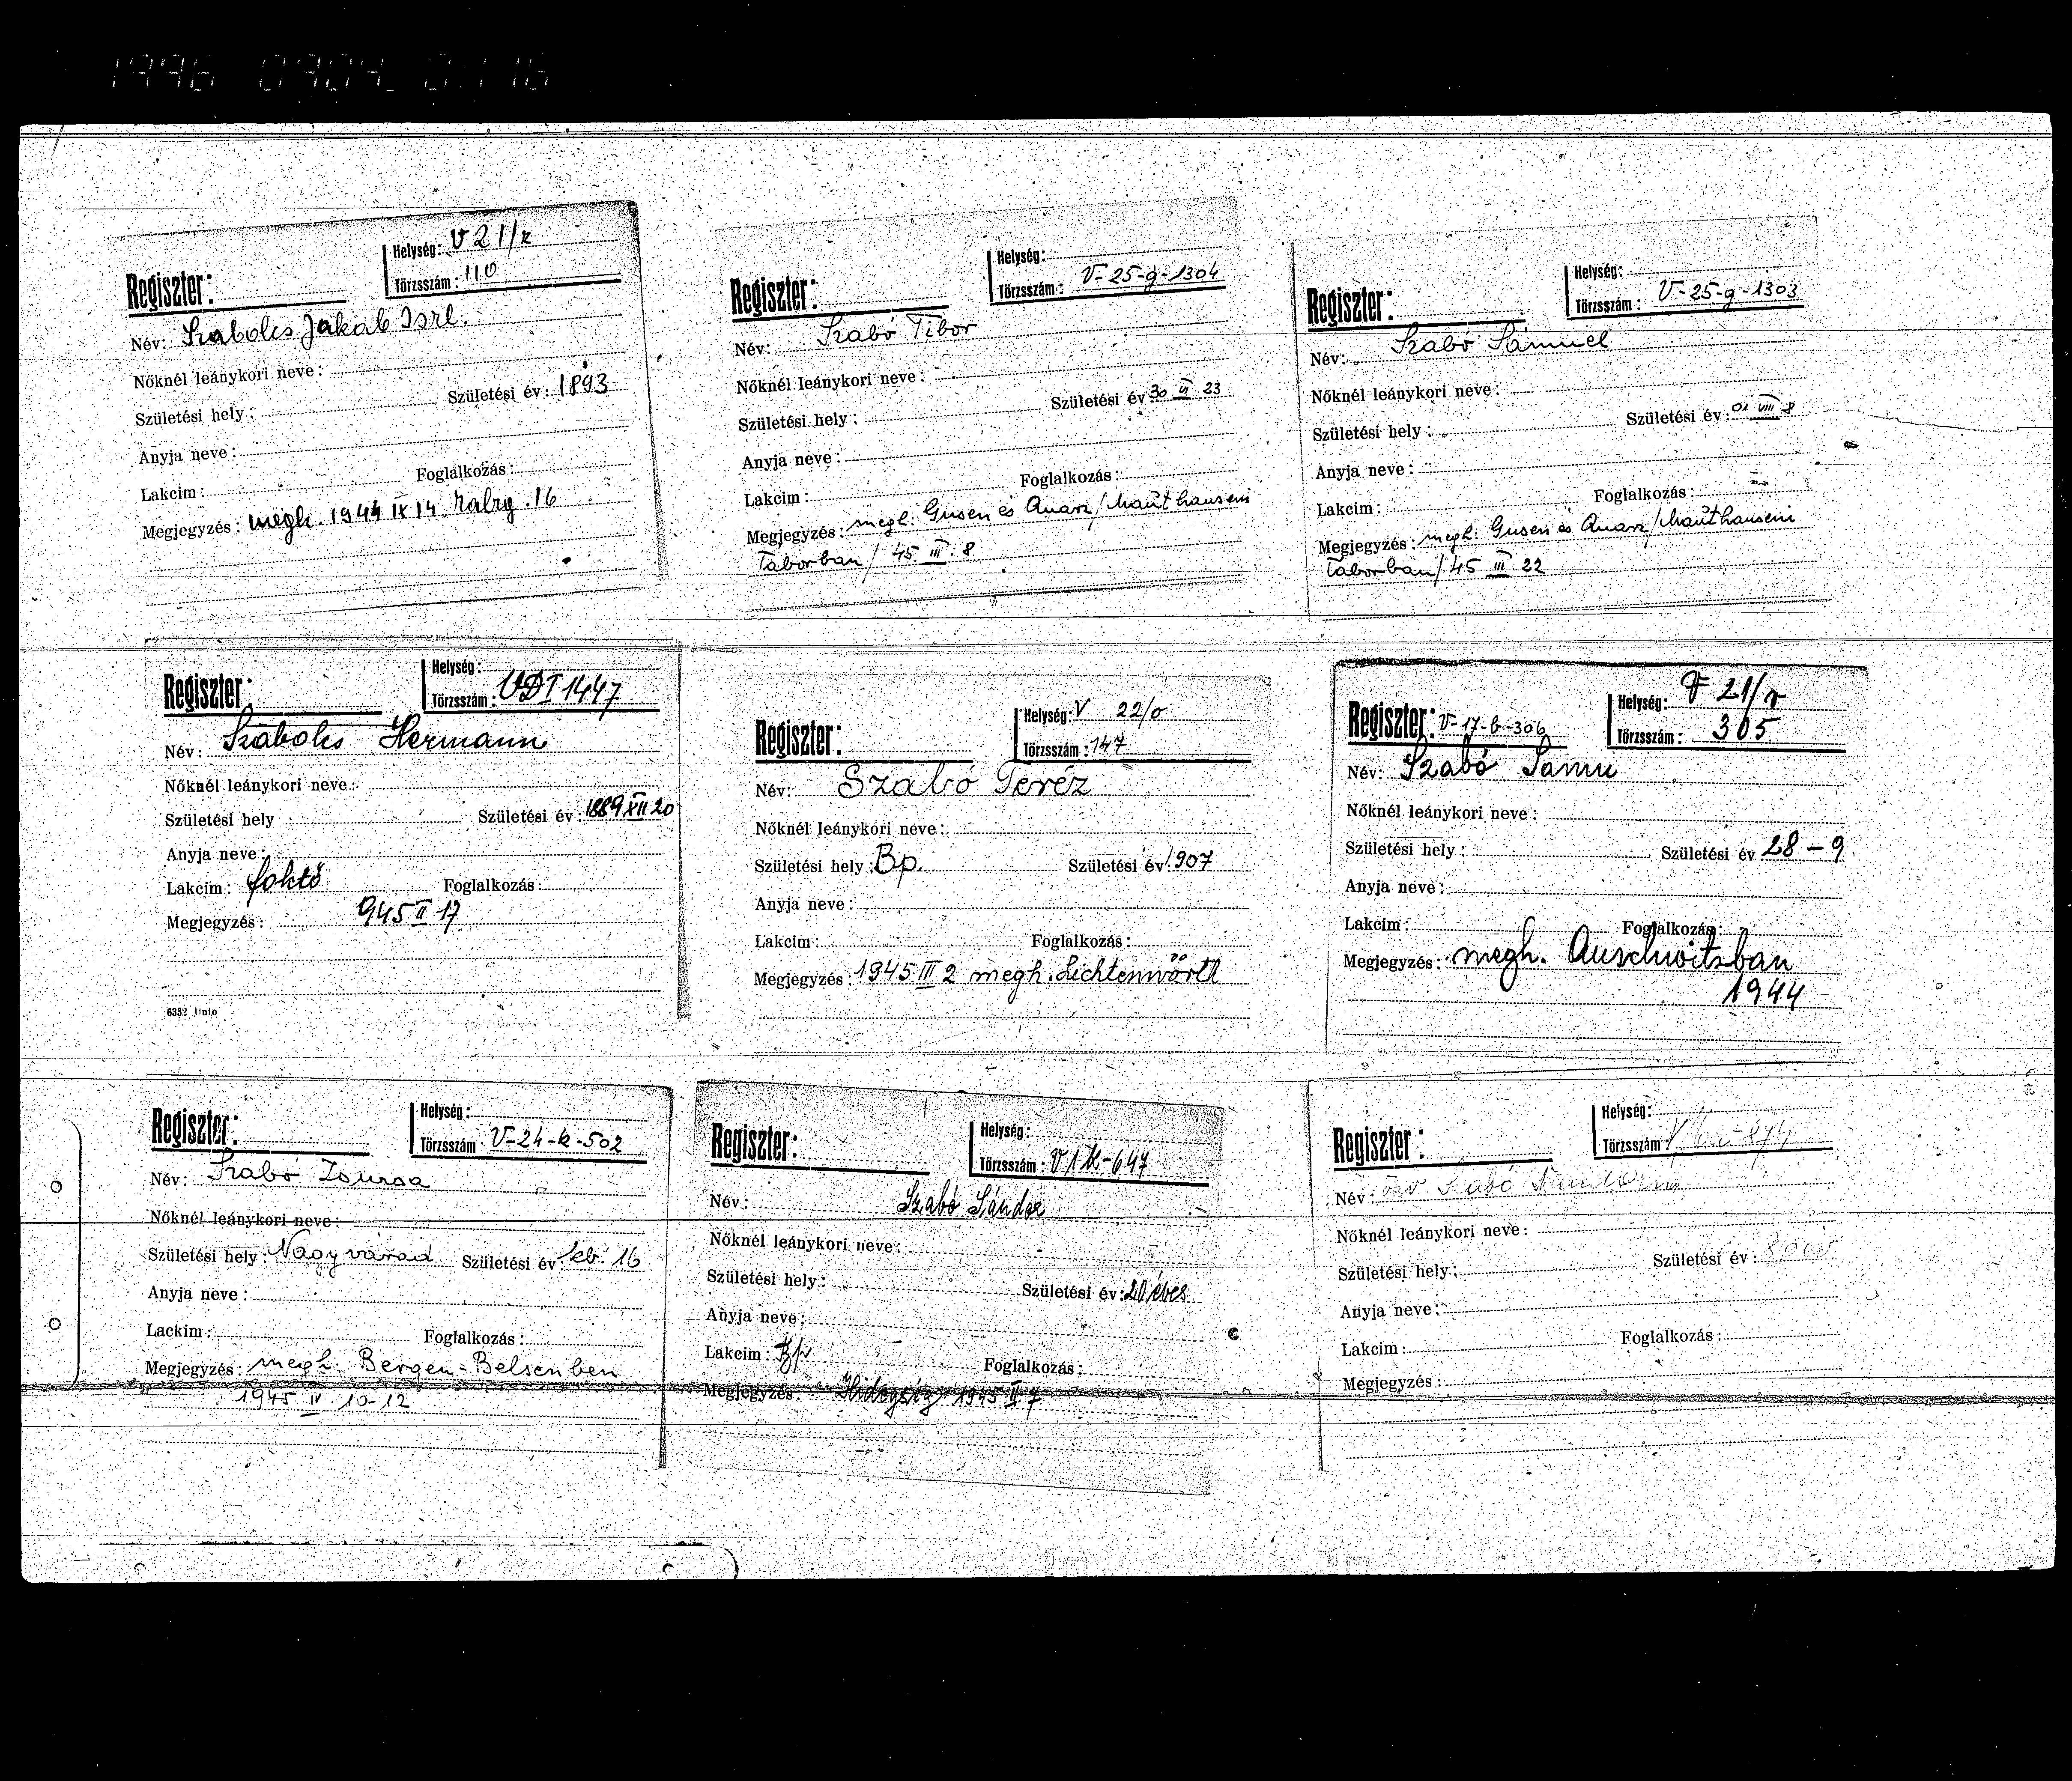 1996 0904 0116
Helység: V 21/r
Regiszter:
Törzsszám: 110
Név: Szabolcs Jakab Isrl.
Nőknél leánykori neve:
Születési hely: Születési év: 1893
Anyja neve:
Lakcim: Foglalkozás:
Megjegyzés: megh. 1944 IX 14 16
Helység:
Regiszter:
Törzsszám: V-25-g-1304
Név: Szabó Tibor
Nőknél leánykori neve:
Születési hely: Születési év 30 VI 23
Anyja neve:
Lakcim: Foglalkozás:
Megjegyzés: megh. Gusen és Quarz/Mauthauseni
Táborban/ 45 III. 8
Helység:
Regiszter:
Törzsszám: V-25-g-1303
Név: Szabó Sámuel
Nőknél leánykori neve:
Születési hely: Születési év: 01 VIII 8
Anyja neve:
Lakcim: Foglalkozás:
Megjegyzés: megh. Gusen és Quarz/Mauthauseni
Táborban/ 45 III 22
Helység:
Regiszter:
Törzsszám: VDI 1447
Név: Szabolcs Hermann
Nőknél leánykori neve:
Születési hely Születési év: 1889 XII 20
Anyja neve:
Lakcim: foktő Foglalkozás:
Megjegyzés: 945 II 17
6332 Tinto
Helység: V 22/o
Regiszter:
Törzsszám: 147
Név: Szabó Teréz
Nőknél leánykori neve:
Születési hely: Bp. Születési év: 907
Anyja neve:
Lakcim: Foglalkozás:
Megjegyzés: 1945 III 2 megh. Lichtenwörth
Helység: V 21/r
Regiszter: V-17-b-306
Törzsszám: 305
Név: Szabó Samu
Nőknél leánykori neve:
Születési hely: Születési év 28-9.
Anyja neve:
Lakcim: Foglalkozás:
Megjegyzés: megh. Auschwitzban
1944
Helység:
Regiszter:
Törzsszám: V-24-k-502
Név: Szabó Zsuzsa
Nőknél leánykori neve:
Születési hely: Nagyvárad Születési év: feb. 16
Anyja neve:
Lackim: Foglalkozás:
Megjegyzés: megh. Bergen-Belsenben
1945 IV. 10-12
Helység:
Regiszter:
Törzsszám: V1k-647
Név: Szabó Sándor
Nőknél leánykori neve:
Születési hely: Születési év: 20 éves
Anyja neve:
Lakcim: Bp Foglalkozás:
Megjegyzés: Hidegség 1945 II 7
Helység:
Regiszter:
Törzsszám:
Név: özv Szabó
Nőknél leánykori neve:
Születési hely: Születési év:
Anyja neve:
Lakcim: Foglalkozás:
Megjegyzés: